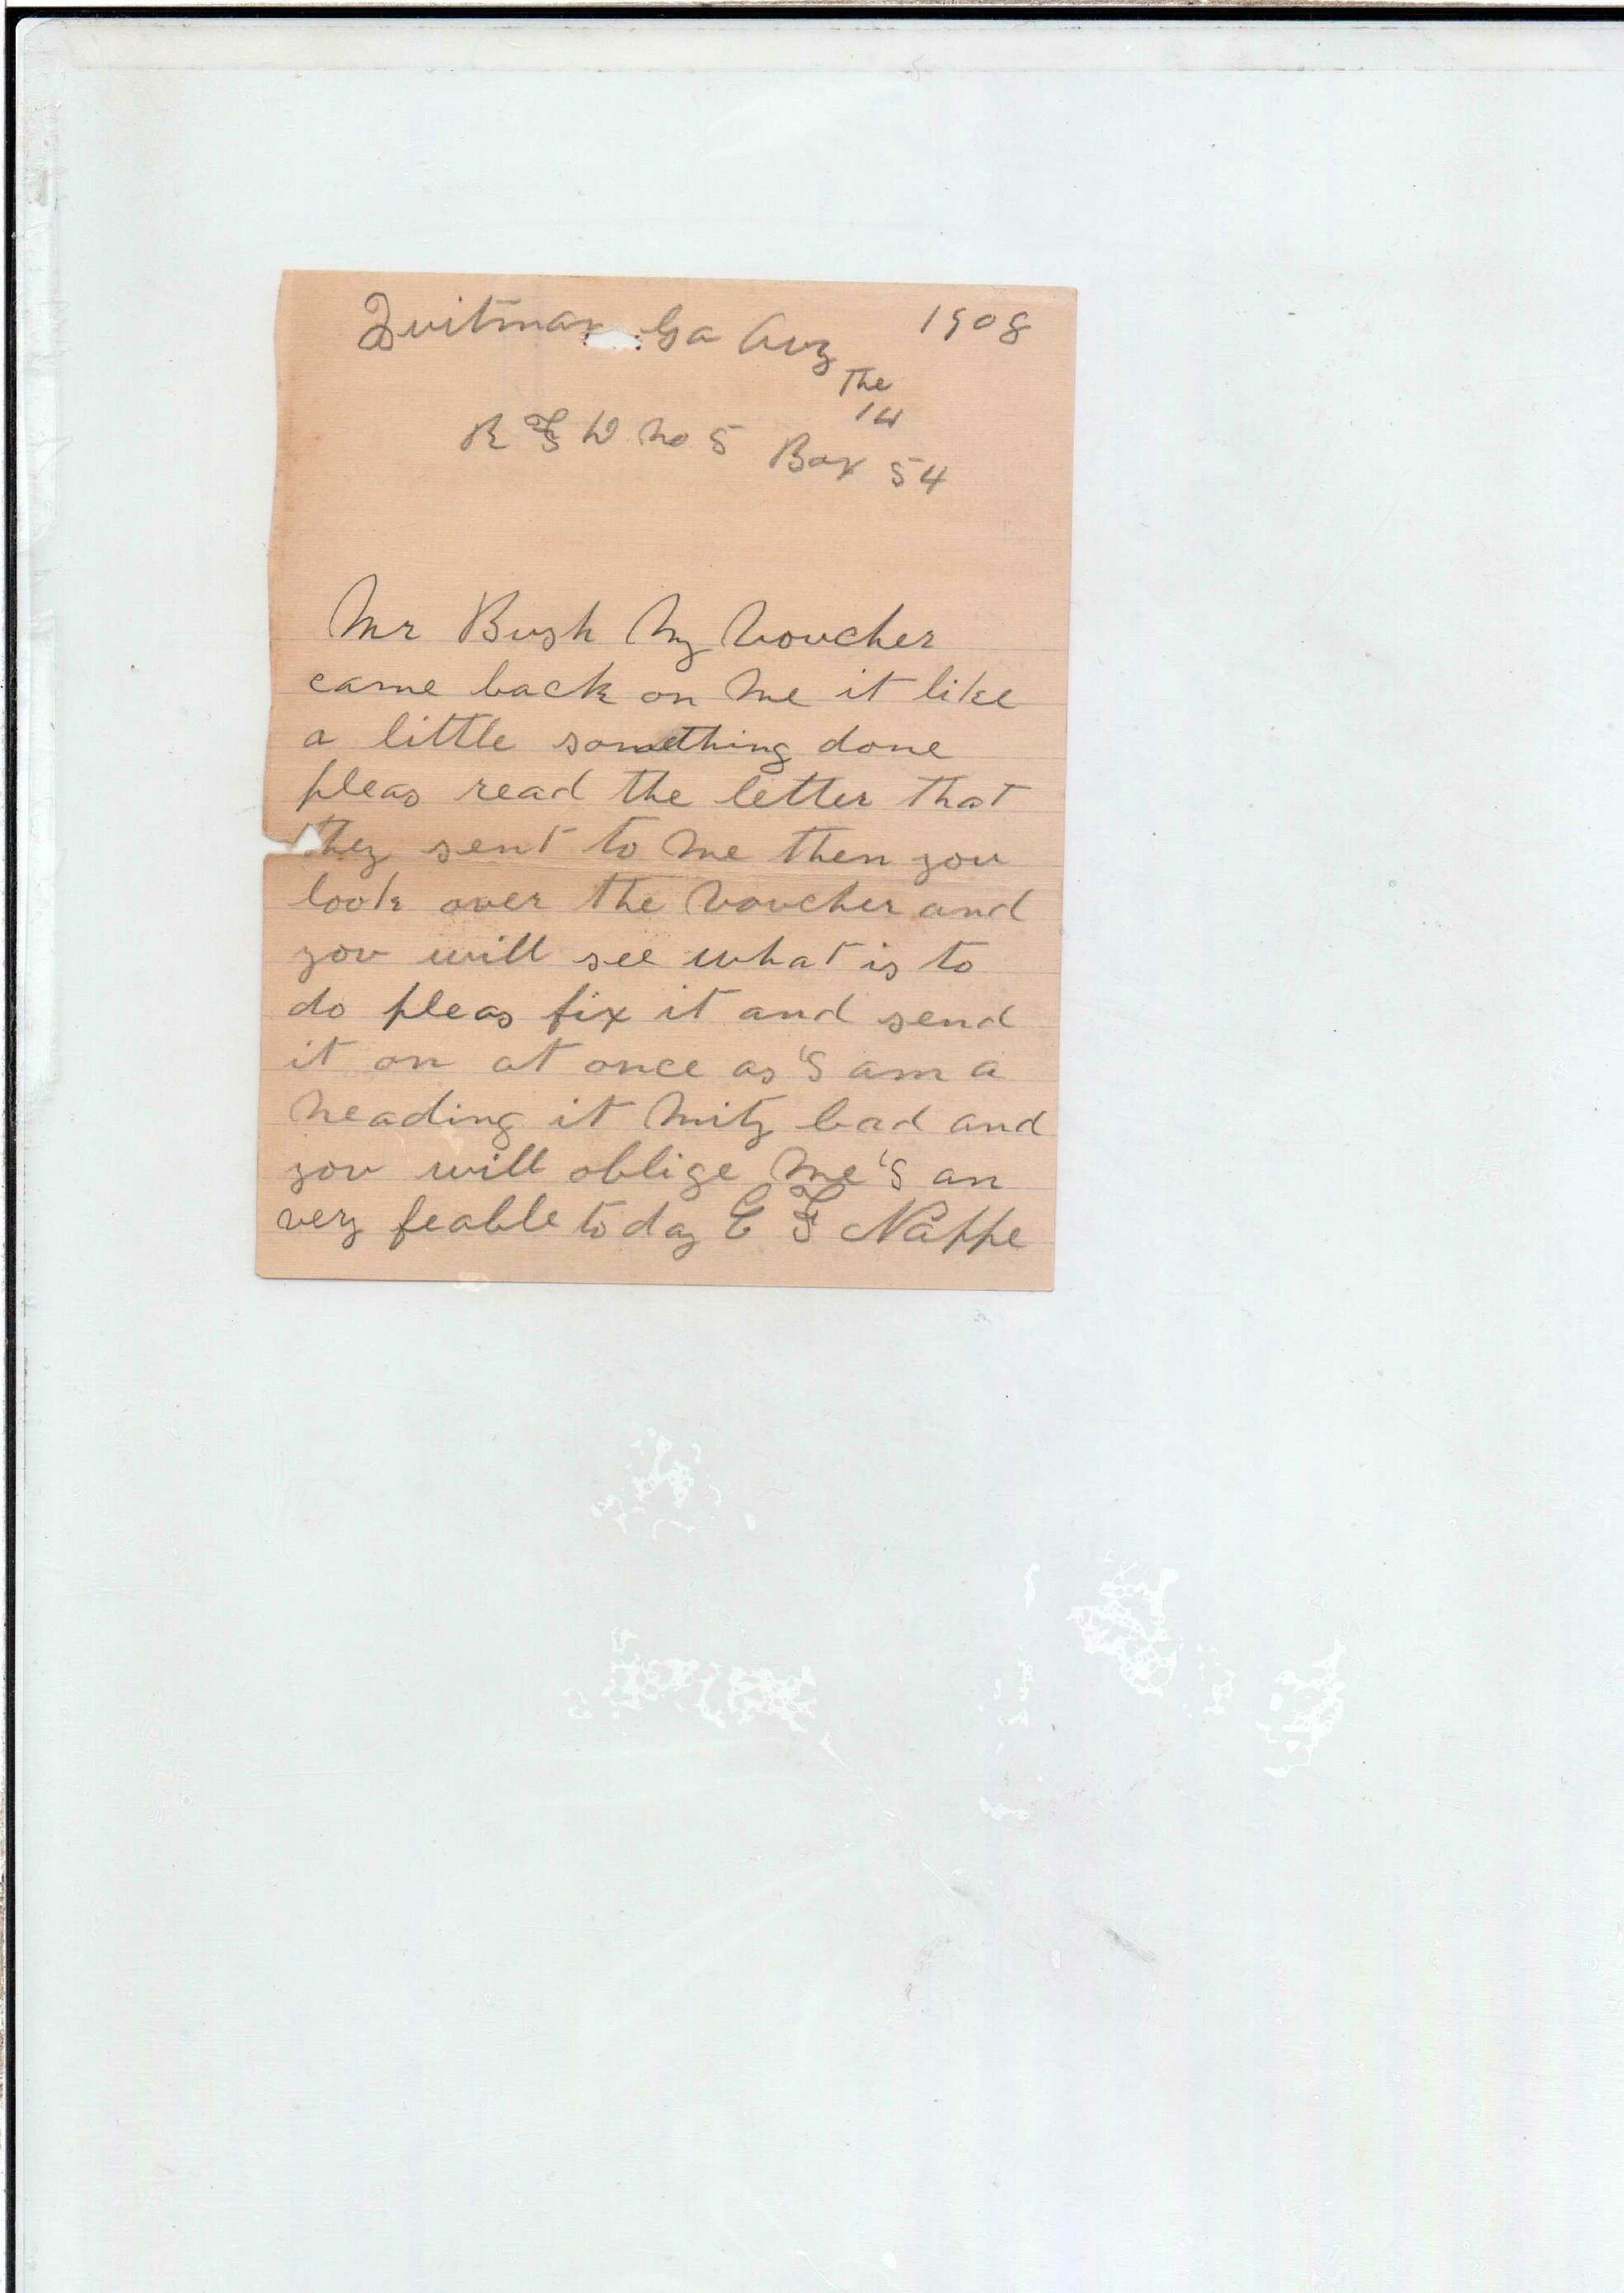 Quitman Ga Aug 1908
The
14
R F D No 5 Box 54
Mr Bush My Voucher
came back on Me it like
a little something done
pleas read the letter that
they sent to Me then you
look over the Voucher and
you will see what is to
do pleas fix it and send
it on at once as I am a
Neading it Mity bad and
you will oblige Me I an
very feable to day E F Nappe